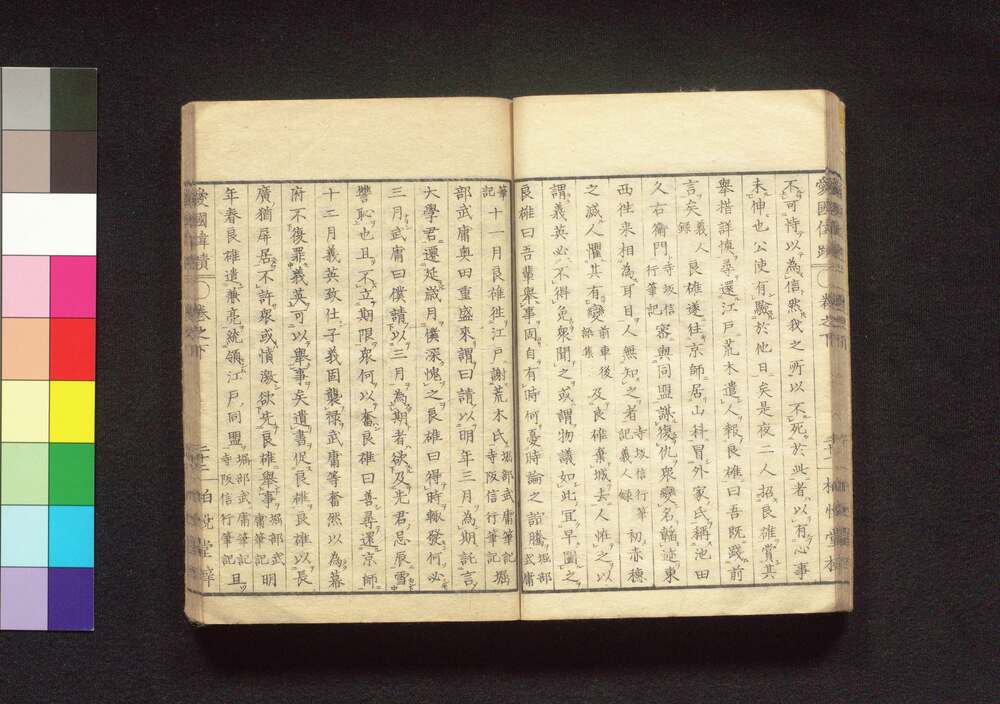 愛國偉蹟 卷之下
不可恃以爲信然我之所以不死於此者以有心事
未伸也公使有驗於他日矣是夜二人招良雄賞其
舉措詳愼尋還江戶荒木遣人報良雄曰吾既踐前
言矣義人錄良雄遂往京師居山科冒外家氏稱池田
久右衞門寺坂信行筆記審與同盟謀復仇衆變名韜迹東
西往來相爲耳目人無知之者寺坂信行筆記義人錄初赤穗
之滅人懼其有變前車後錄集及良雄棄城去人惟之以
謂義英必不得免衆聞之或謂物議如此宜早圖之
良雄曰吾輩舉事固自有時何憂時論之諠騰堀部武庸
筆記十一月良雄徃江戶謝荒木氏堀部武庸筆記寺阪信行筆記堀
部武庸奧田重盛來謂曰請以明年三月爲期託言
大學君遷延歲月僕深愧之良雄曰得時輙發何必
三月武庸曰僕請以三月爲期者欲及先君忌辰雪
讐恥也且不立期限衆何以奮良雄曰善尋還京師
十二月義英致仕子義固襲祿武庸等奮然以爲幕
府不復罪義英可以舉事矣遺書促良雄良雄以長
廣猶屏居不許衆或憤激欲先良雄舉事堀部武庸筆記明
年春良雄遣兼亮統領江戶同盟堀部武庸筆記寺阪信行筆記且
愛國偉蹟 卷之下 二十二 柏悅堂梓